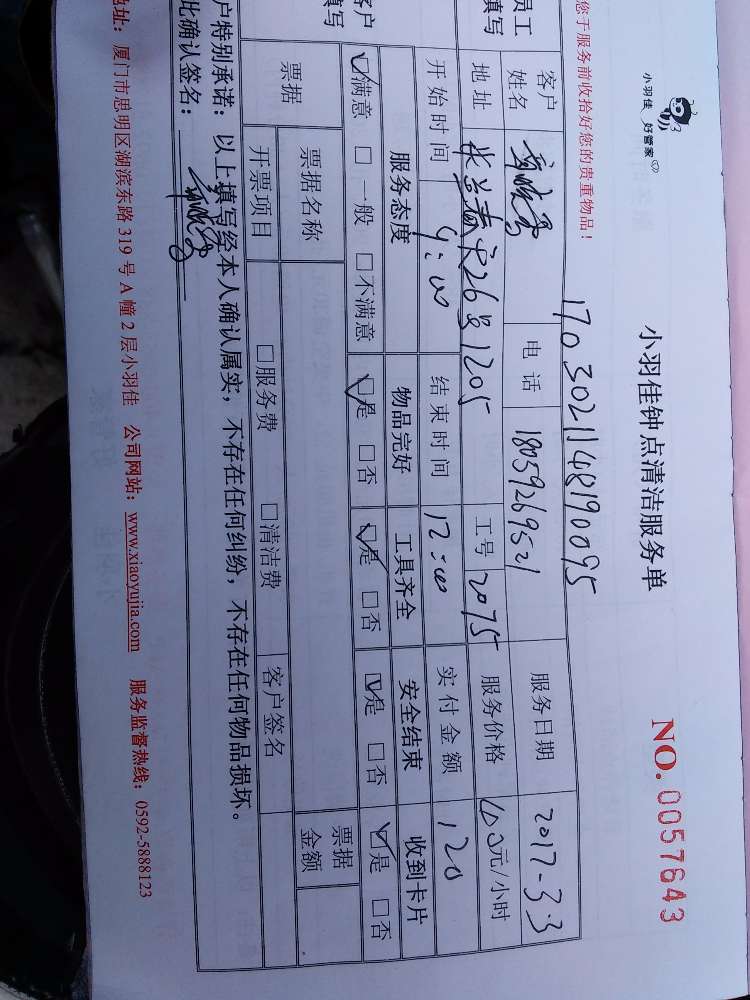 小羽佳 好管家
小羽佳钟点清洁服务单
NO. 0057643
1703021148190095
您于服务前收拾好您的贵重物品！
员工
填写
客户
姓名
电话 18059269521
服务日期 2017-3.3
地址 26号1205
工号 2075
服务价格 元/小时
开始时间 9:00
结束时间 12:00
实付金额 120
客户
填写
服务态度 物品完好 工具齐全 安全结束 收到卡片
☑满意 □一般 □不满意 ☑是 □否 ☑是 □否 ☑是 □否 ☑是 □否
票据 票据名称 票据
金额
开票项目 □服务费 □清洁费 客户签名
户特别承诺：以上填写经本人确认属实，不存在任何纠纷，不存在任何物品损坏。
此确认签名：
地址：厦门市思明区湖滨东路 319 号 A 幢 2 层小羽佳 公司网站：www.xiaoyujia.com 服务监督热线：0592-5888123